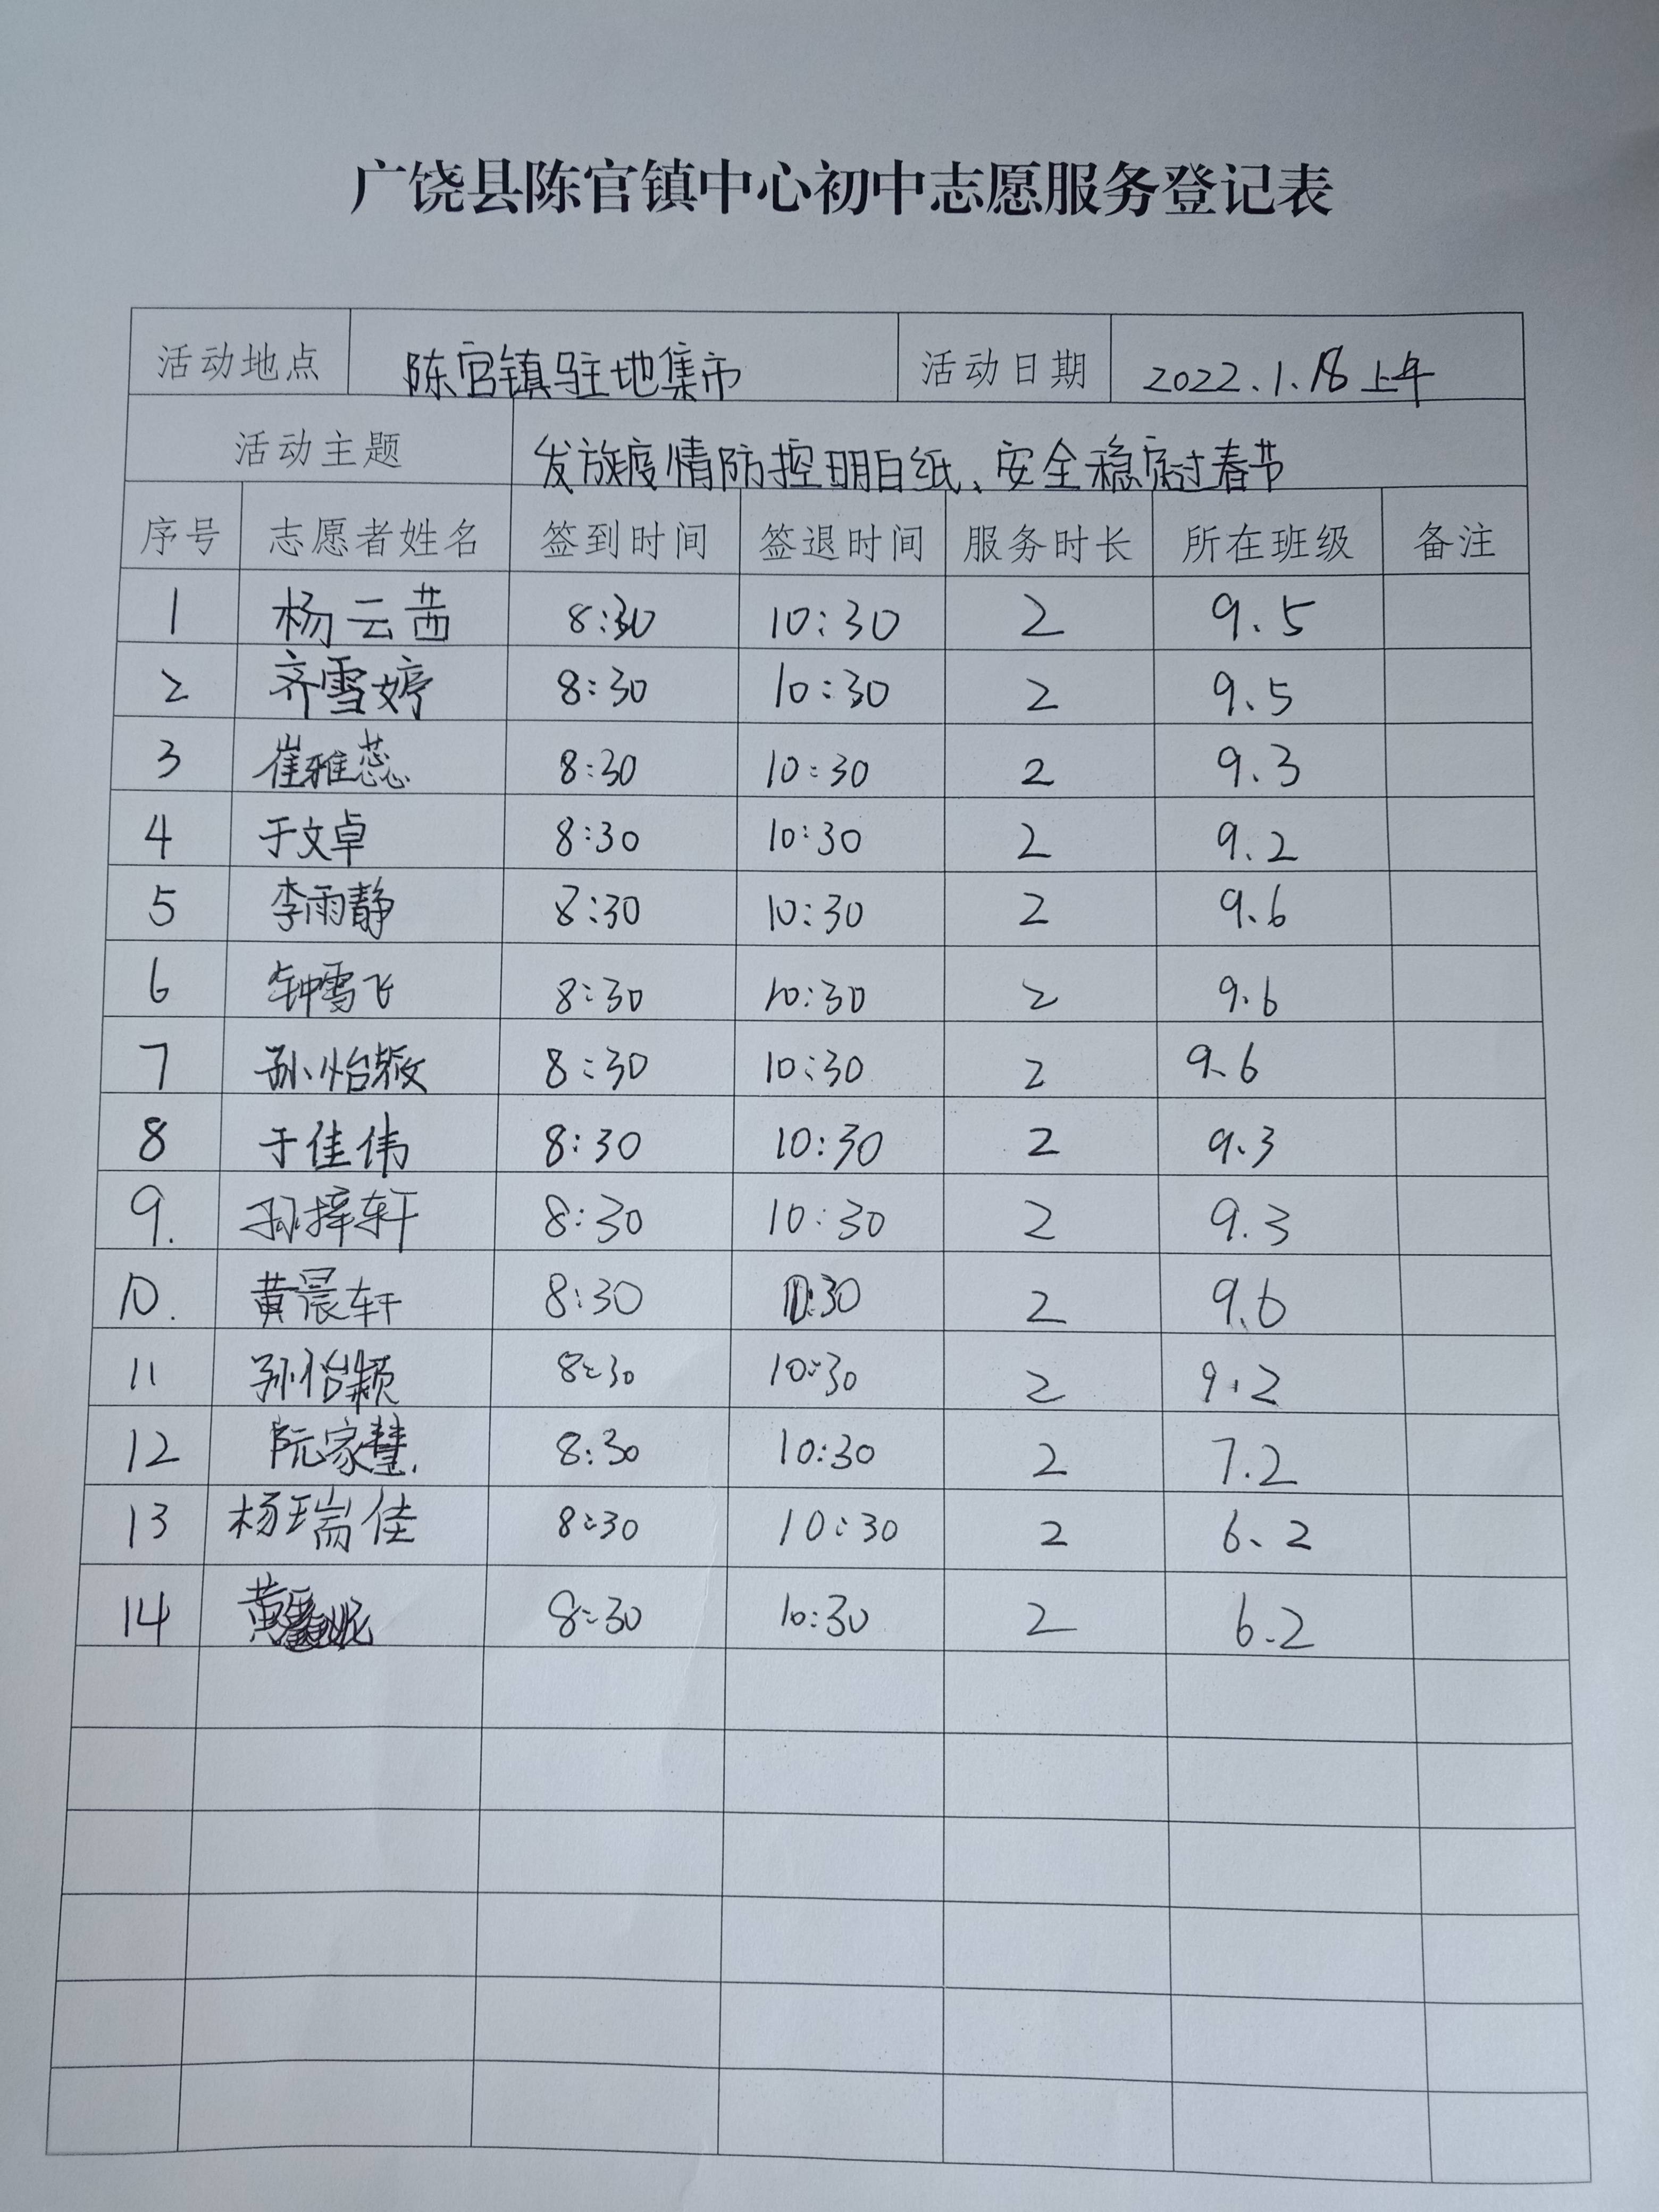 广饶县陈官镇中心初中志愿服务登记表
活动地点 陈官镇驻地集市 活动日期 2022.1.18上午
活动主题 发放疫情防控明白纸、安全稳定过春节
序号 志愿者姓名 签到时间 签退时间 服务时长 所在班级 备注
1 杨云茜 8:30 10:30 2 9.5
2 齐雪婷 8:30 10:30 2 9.5
3 崔雅蕊 8:30 10:30 2 9.3
4 于文卓 8:30 10:30 2 9.2
5 李雨静 8:30 10:30 2 9.6
6 钟雪飞 8:30 10:30 2 9.6
7 孙怡 8:30 10:30 2 9.6
8 于佳伟 8:30 10:30 2 9.3
9. 孙梓轩 8:30 10:30 2 9.3
10. 黄晨轩 8:30 10:30 2 9.6
11 孙怡颖 8:30 10:30 2 9.2
12 阮家慧 8:30 10:30 2 7.2
13 杨瑞佳 8:30 10:30 2 6.2
14 黄 8:30 10:30 2 6.2